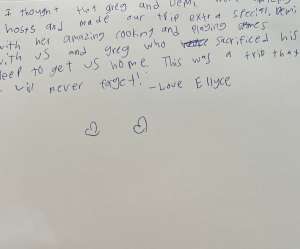 I thought that greg and Demi,
hosts and made our trip extra special, Demi
with her amazing cooking and playing games
with us and greg who sacrificed his
sleep to get us home. This was a trip that
I will never forget! - Love Ellyce